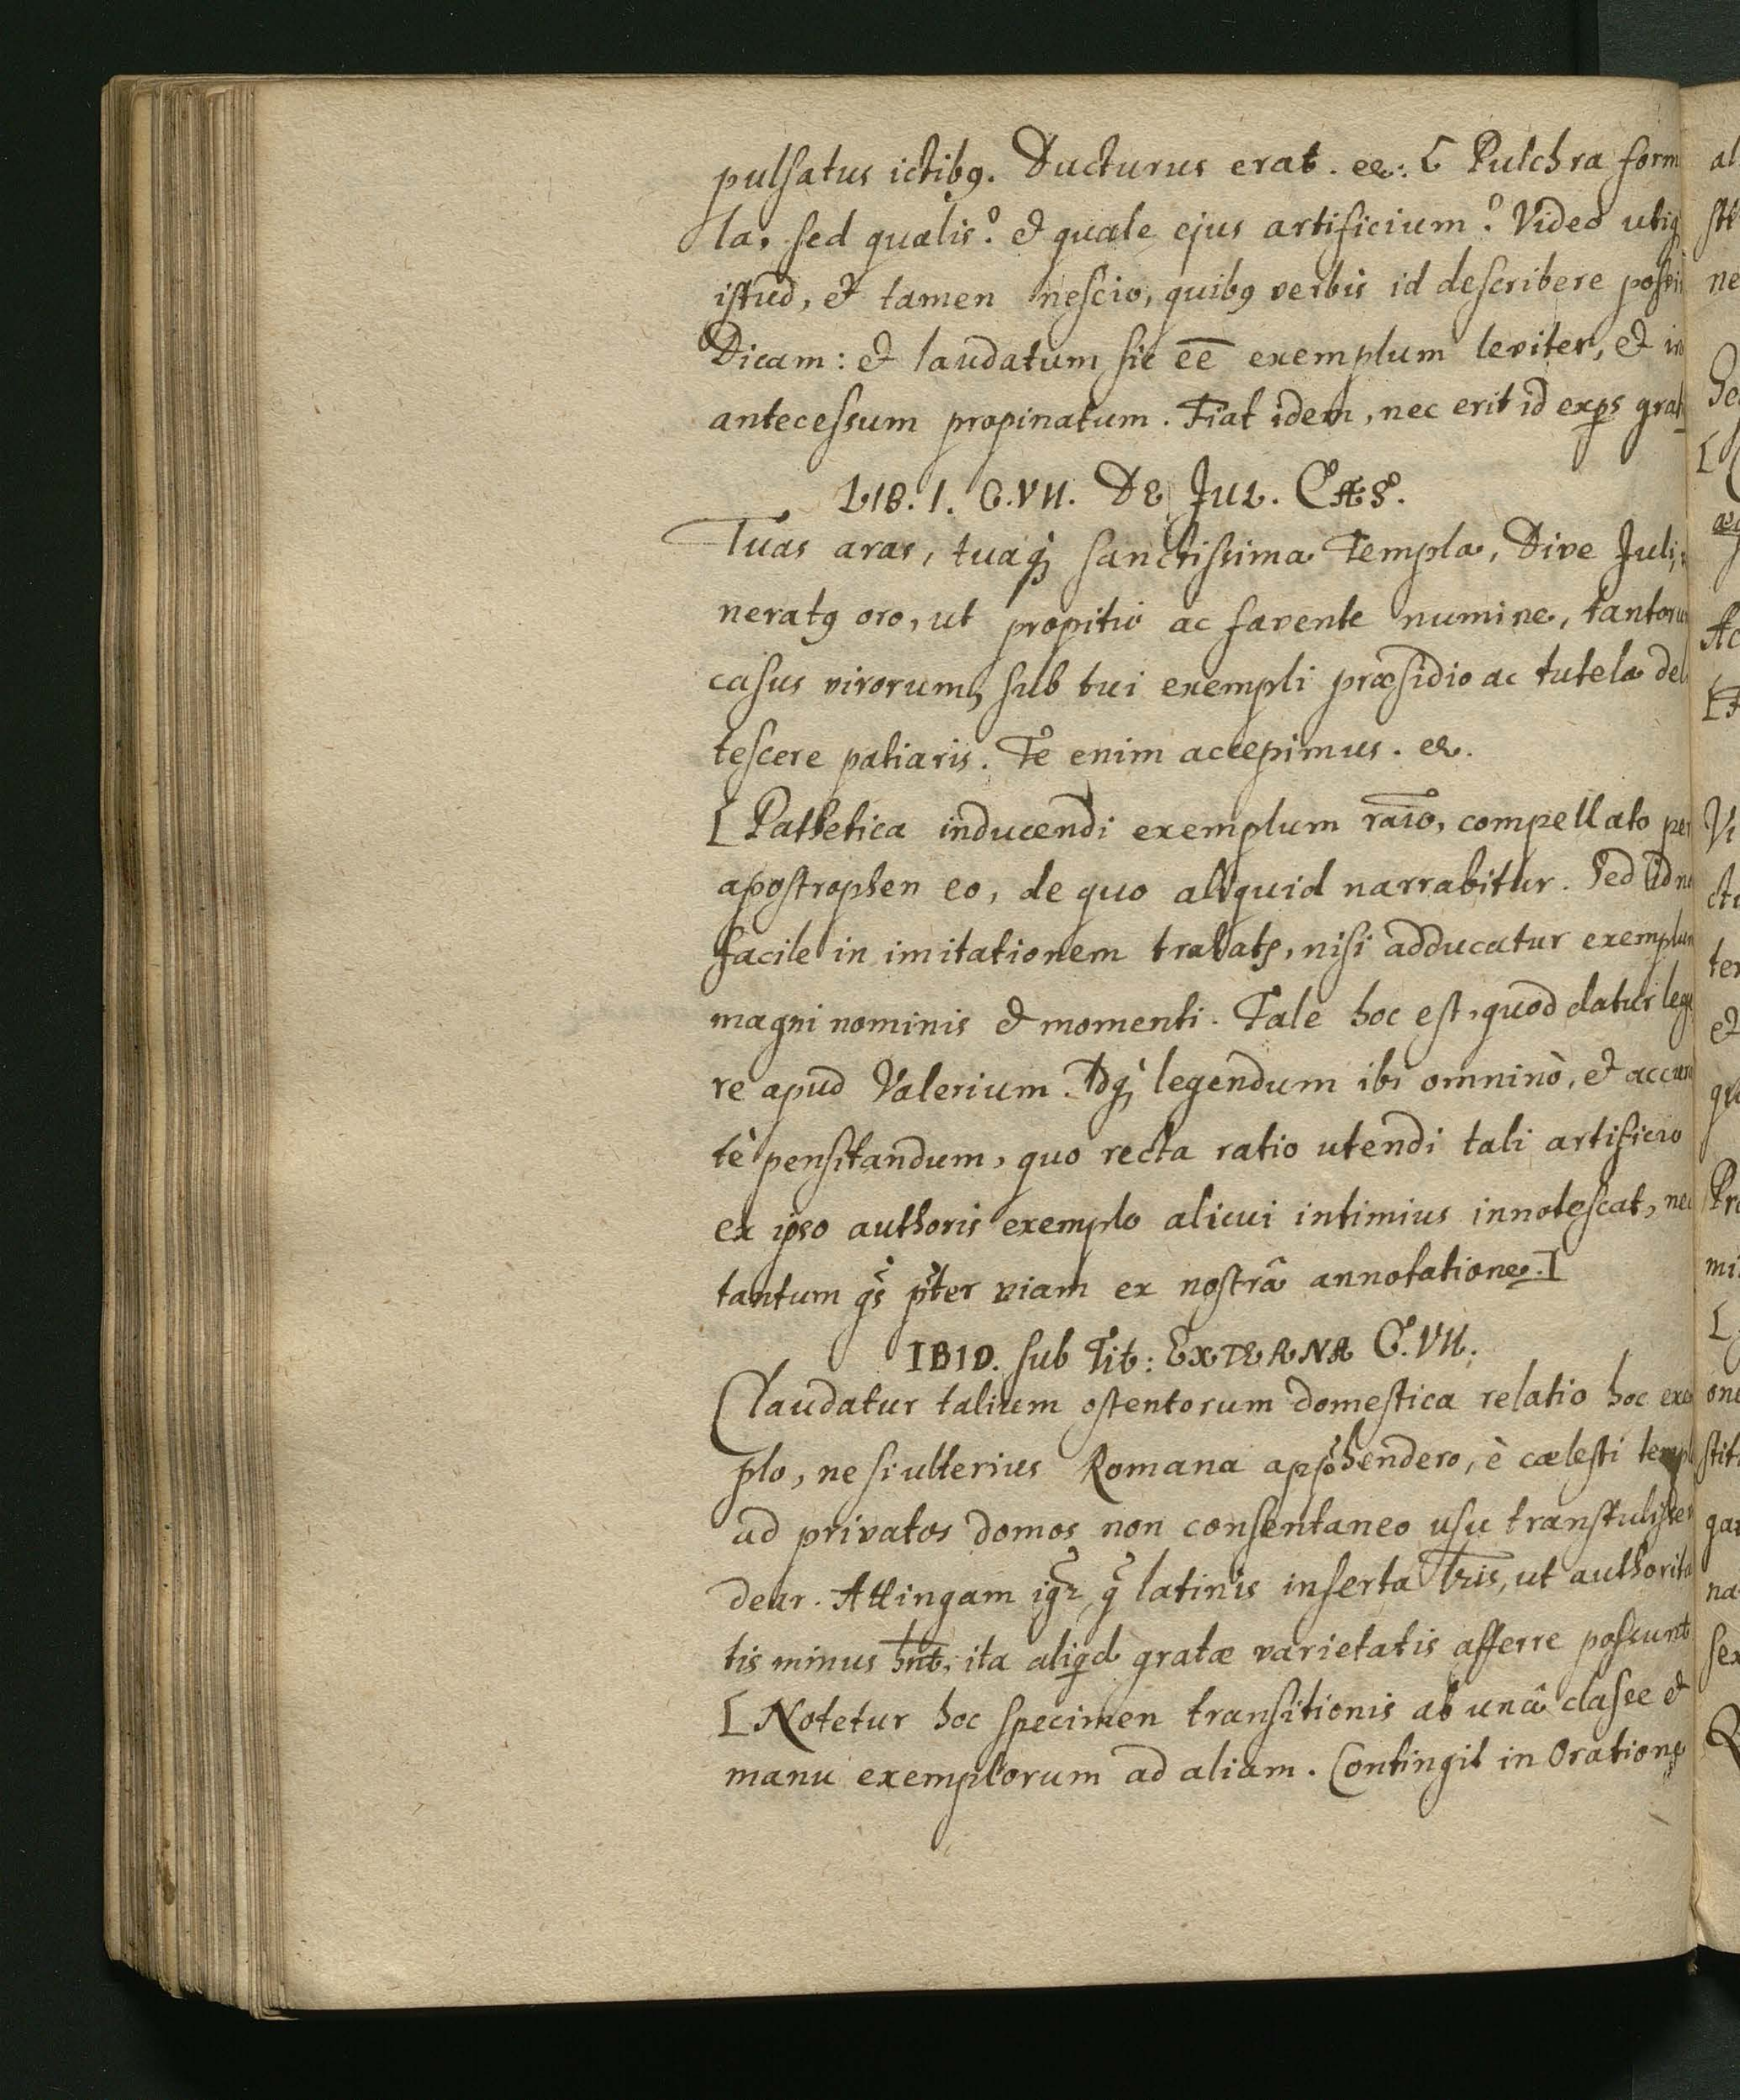 pulsatus ictibq. Ducturus erat. &c.: [ Pulchra form
la, sed qualis? & quale ejus artificium? Video utiq
istud, & tamen nescio, quibq verbis id describere possi
Dicam: & laudatum sic eē exemplum leviter, & in
antecessum propinatum. Fiat idem, nec erit id exps grat
LIB. I. C. VII. DE JUL. CÆS.
Tuas aras, tuaq; sanctissima Templa, Dive Juli,
neratq oro, ut propitio ac favente numine, tantoru
casus virorum, sub tui exempli præsidio ac tutela del
tescere patiaris. Te enim accepimus. &c.
[ Pathetica inducendi exemplum raīo, compellato per
apostrophen eo, de quo aliquid narrabitur. Sed id no
facile in imitationem trahatr, nisi adducatur exemplum
magni nominis & momenti. Tale hoc est, quod datur lege
re apud Valerium. Idq; legendum ibi omninò, & accura
tè pensitandum, quo recta ratio utendi tali artificio
ex ipso authoris exemplo alicui intimius innotescat, nec
tantum qs pter viam ex nostrâ annotatione. ]
IBID. sub Tit: EXTERNA C. VII.
Claudatur talium ostentorum domestica relatio hoc exe
plo, ne si ulterius Romana apphendero, è cælesti templ
ad privatos domos non consentaneo usu transtulisse
dear. Attingam igr q latinis inserta lris, ut authorita
tis minus hnt, ita aliqd gratæ varietatis afferre possunt
[ Notetur hoc specimen transitionis ab unâ classe &
manu exemplorum ad aliam. Contingit in Oratione